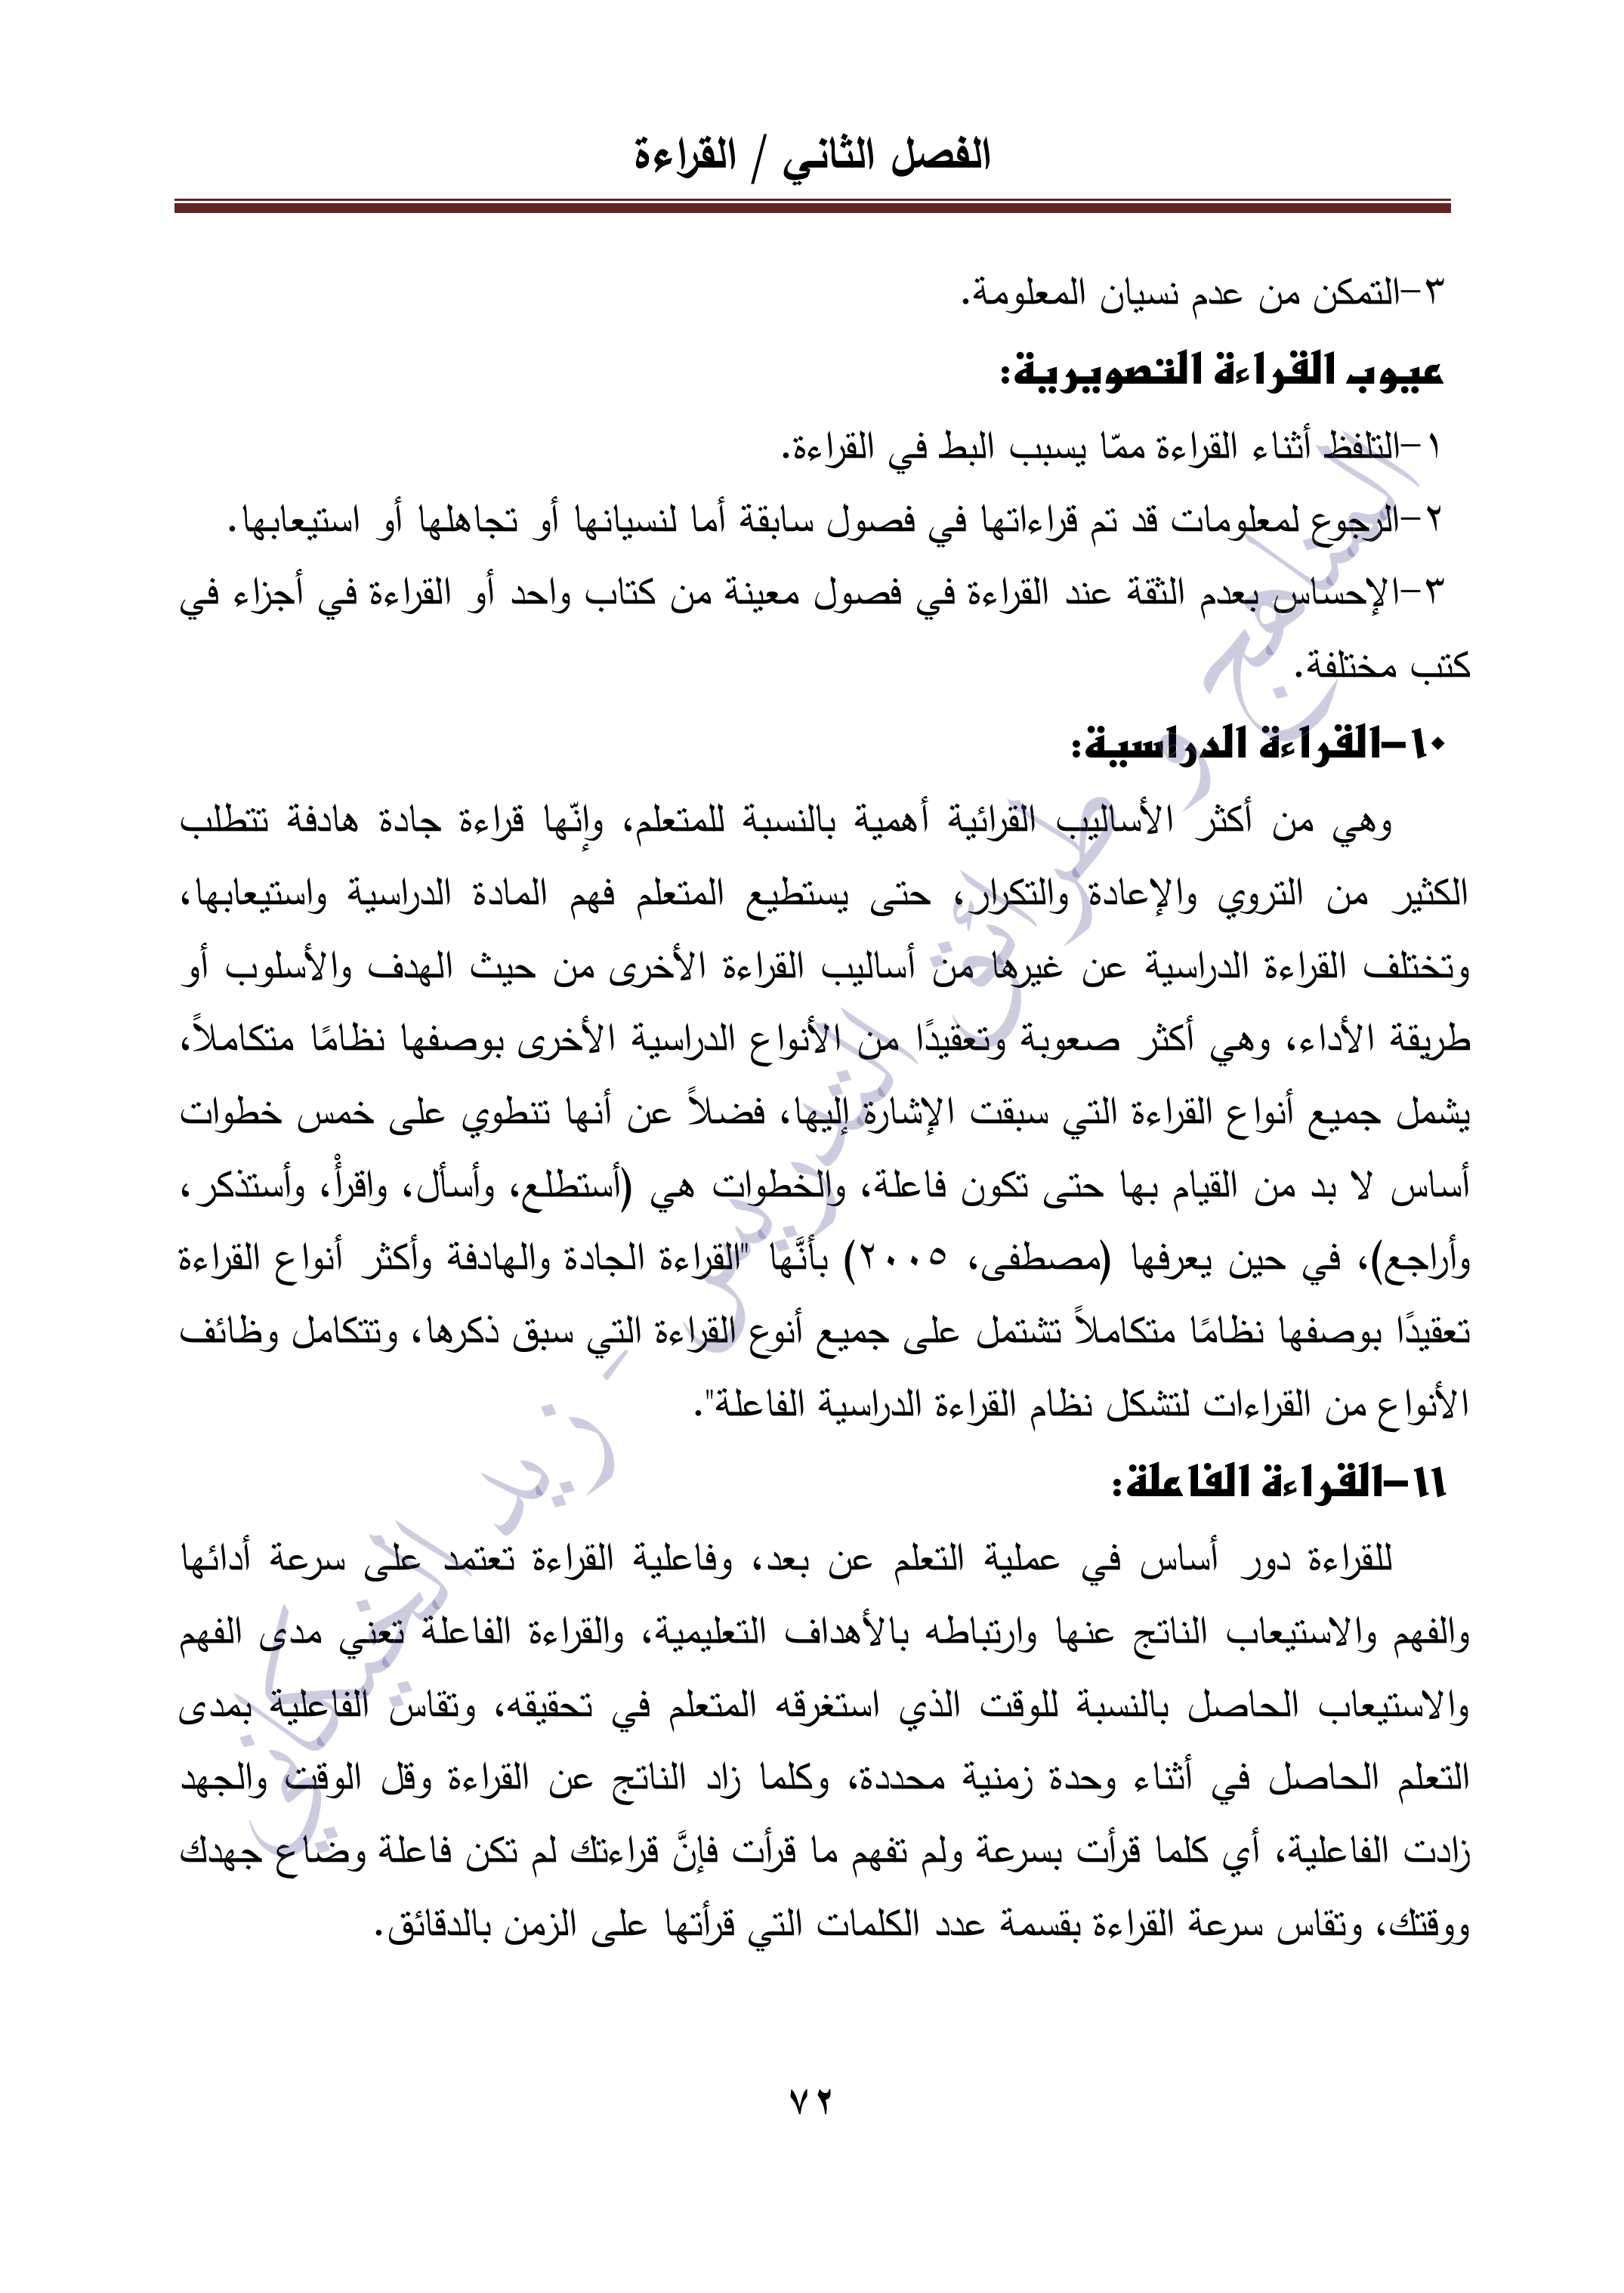 الفصل الثاني / القراءة
٣-التمكن من عدم نسيان المعلومة.
عيوب القراءة التصويرية:
١-التلفظ أثناء القراءة ممّا يسبب البط في القراءة.
٢-الرجوع لمعلومات قد تم قراءاتها في فصول سابقة أما لنسيانها أو تجاهلها أو استيعابها.
٣-الإحساس بعدم الثقة عند القراءة في فصول معينة من كتاب واحد أو القراءة في أجزاء في
كتب مختلفة.
١٠-القراءة الدراسية:
وهي من أكثر الأساليب القرائية أهمية بالنسبة للمتعلم، وإنّها قراءة جادة هادفة تتطلب
الكثير من التروي والإعادة والتكرار، حتى يستطيع المتعلم فهم المادة الدراسية واستيعابها،
وتختلف القراءة الدراسية عن غيرها من أساليب القراءة الأخرى من حيث الهدف والأسلوب أو
طريقة الأداء، وهي أكثر صعوبة وتعقيدًا من الأنواع الدراسية الأخرى بوصفها نظامًا متكاملاً،
يشمل جميع أنواع القراءة التي سبقت الإشارة إليها، فضلاً عن أنها تنطوي على خمس خطوات
أساس لا بد من القيام بها حتى تكون فاعلة، والخطوات هي (أستطلع، وأسأل، واقرأْ، وأستذكر،
وأراجع)، في حين يعرفها (مصطفى، ٢٠٠٥) بأنَّها "القراءة الجادة والهادفة وأكثر أنواع القراءة
تعقيدًا بوصفها نظامًا متكاملاً تشتمل على جميع أنوع القراءة التي سبق ذكرها، وتتكامل وظائف
الأنواع من القراءات لتشكل نظام القراءة الدراسية الفاعلة".
١١-القراءة الفاعلة:
للقراءة دور أساس في عملية التعلم عن بعد، وفاعلية القراءة تعتمد على سرعة أدائها
والفهم والاستيعاب الناتج عنها وارتباطه بالأهداف التعليمية، والقراءة الفاعلة تعني مدى الفهم
والاستيعاب الحاصل بالنسبة للوقت الذي استغرقه المتعلم في تحقيقه، وتقاس الفاعلية بمدى
التعلم الحاصل في أثناء وحدة زمنية محددة، وكلما زاد الناتج عن القراءة وقل الوقت والجهد
زادت الفاعلية، أي كلما قرأت بسرعة ولم تفهم ما قرأت فإنَّ قراءتك لم تكن فاعلة وضاع جهدك
ووقتك، وتقاس سرعة القراءة بقسمة عدد الكلمات التي قرأتها على الزمن بالدقائق.
٧٢
المناهج و طرائق التدريس - زيد الخيكاني